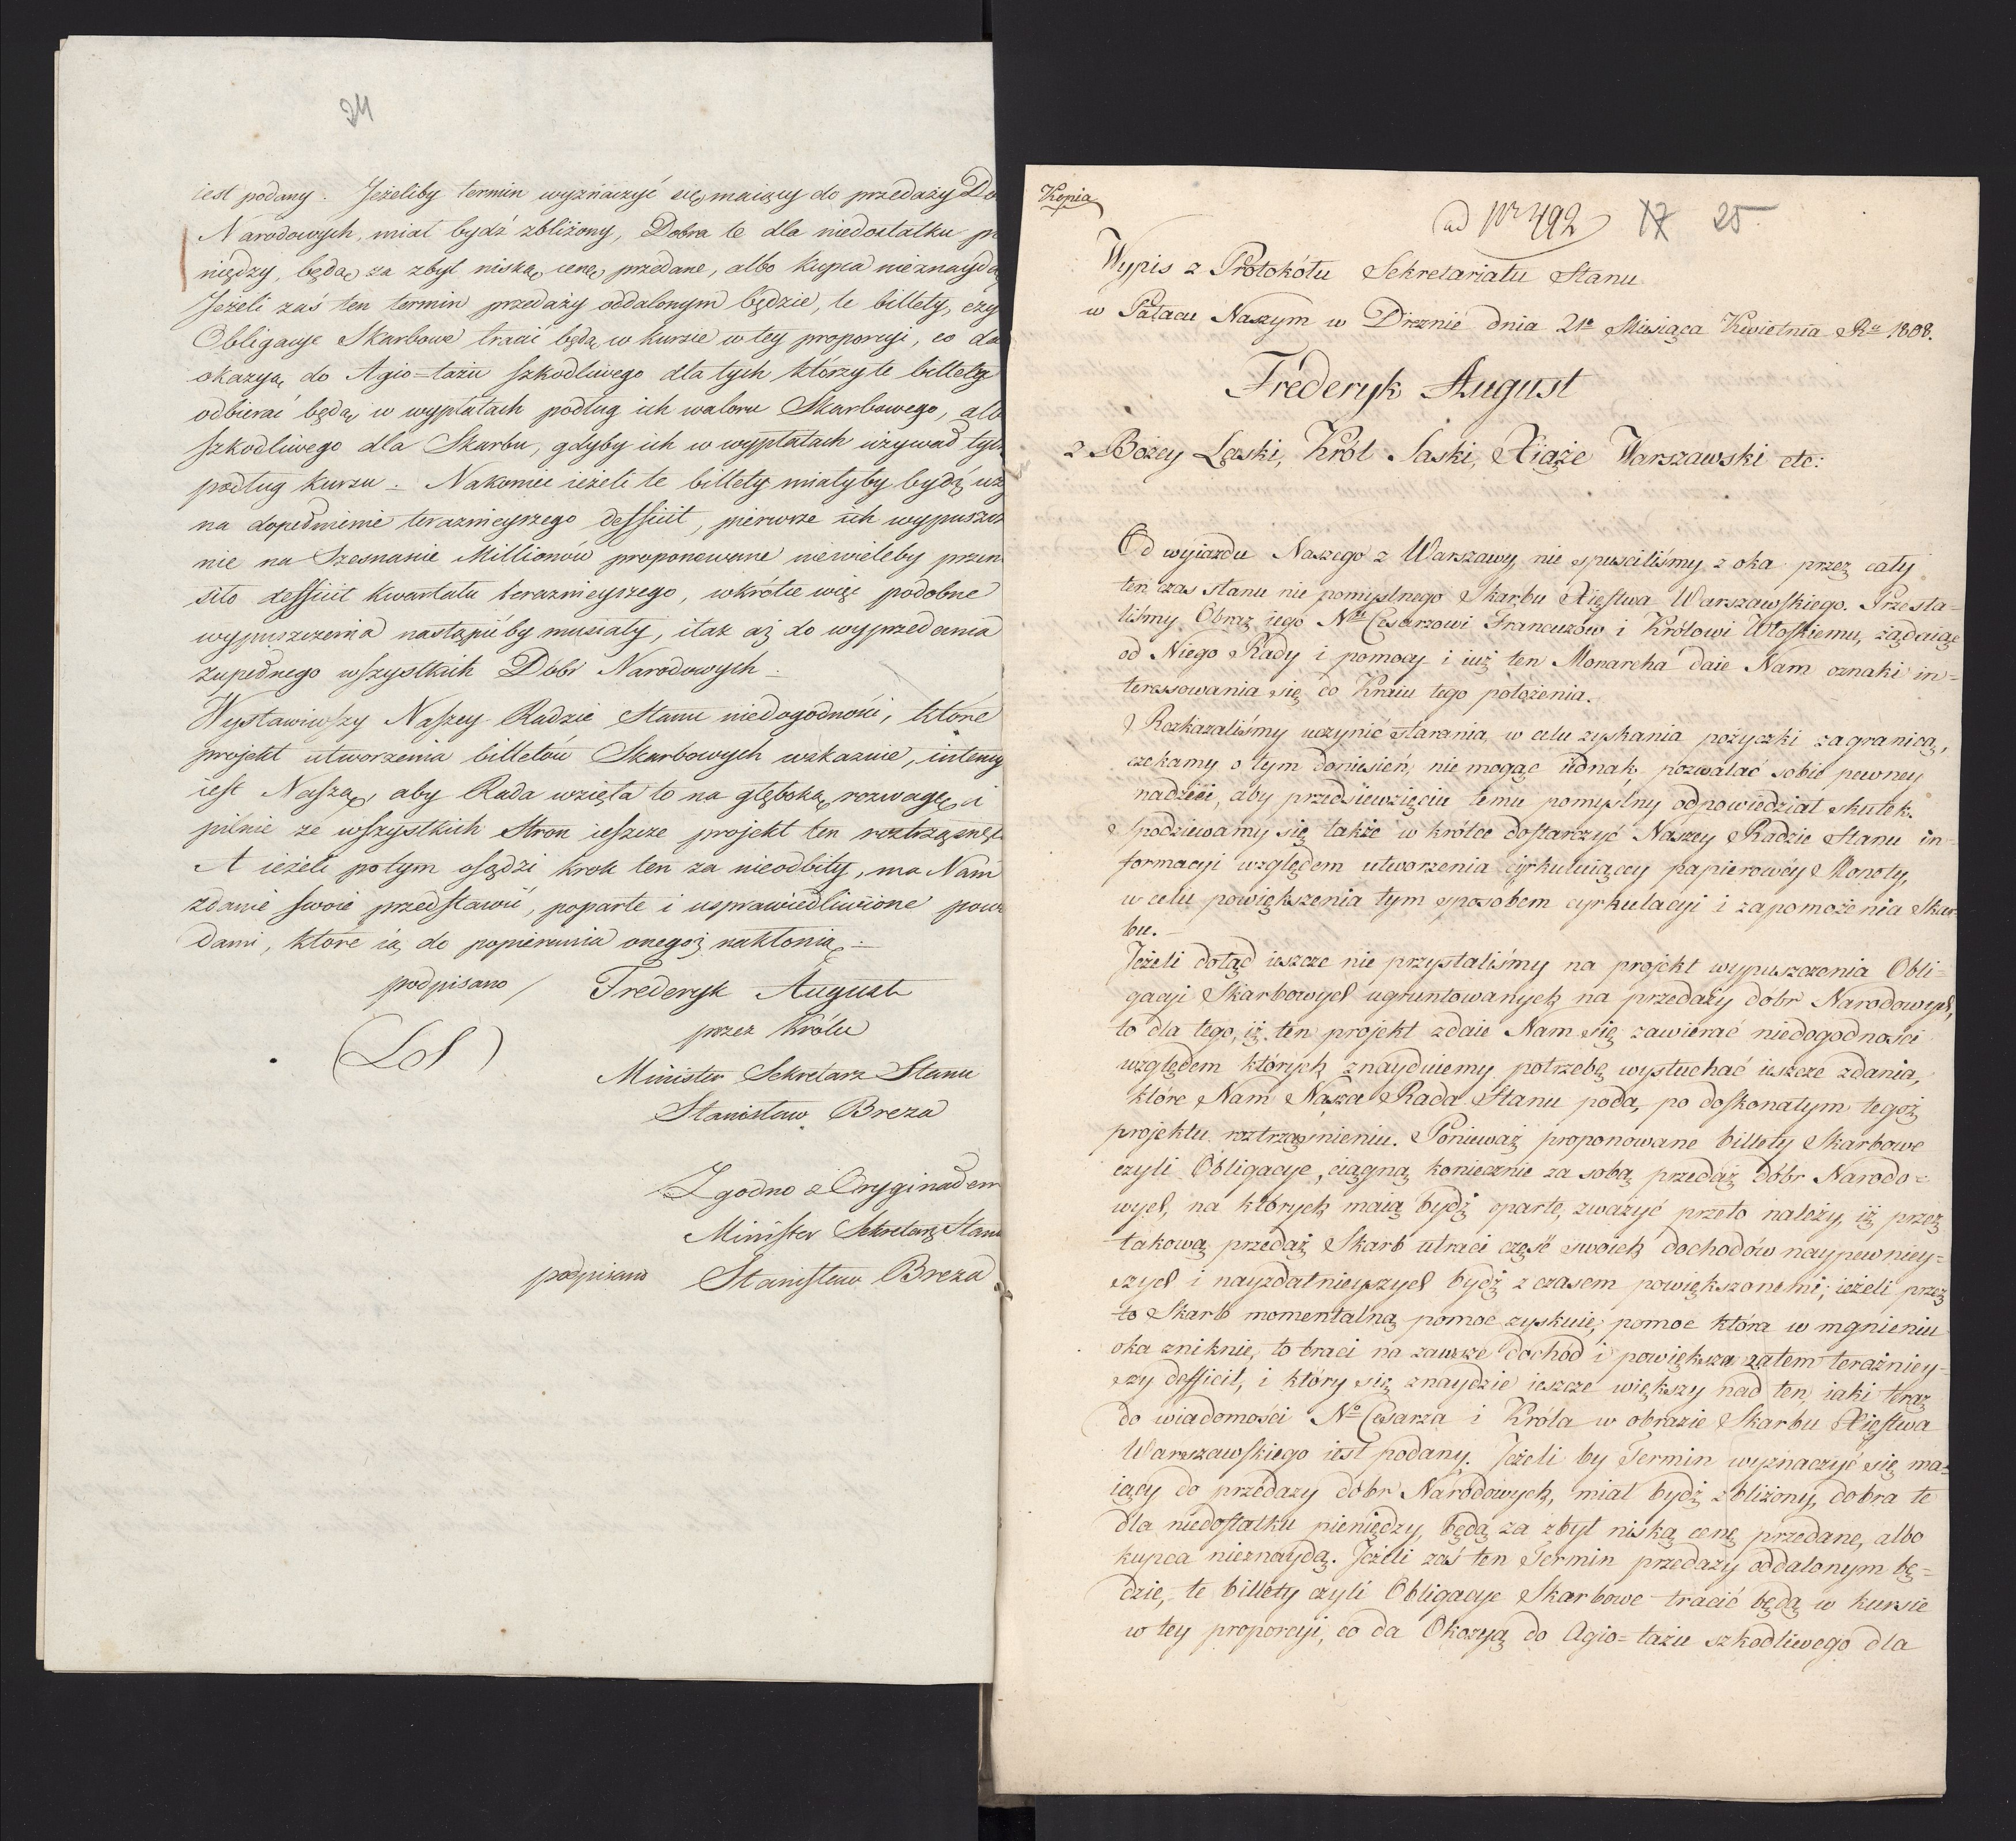 24
iest podany. Jeżeliby termin wyznaczyć się maiący do przedaży Do
Narodowych, miał bydź zbliżony, Dobra te dla niedostatku pie
niędzy, będą za zbyt niską cenę przedane, albo kupca nieznaydą
Jeżeli zaś ten termin przedaży oddalonym będzie, te billety, czy
Obligacye Skarbowe tracić będą w kursie w tey proporcyi, co da
okazyą do Agio-tażu szkodliwego dla tych którzy te billety
odbierać będą w wypłatach podług ich waloru Skarbowego, alb
szkodliwego dla Skarbu, gdyby ich w wypłatach używał tyl
podług kursu. Nakoniec ieżeli te billety miałyby bydź uż
na dopełnienie teraznieyszego deffiit, pierwsze ich wypuszcz
nie na Szesnaście Millionów proponowane niewieleby przen
siło deffiit kwartału teraznieyszego, wkrótce więc podobne
wypuszczenia nastąpićby musiały, itak aż do wyprzedania
zupełnego wszystkich Dóbr Narodowych.
Wystawiwszy Naszey Radzie Stanu niedogodności, które
projekt utworzenia billetów Skarbowych wskazuie, intency
iest Naszą, aby Rada wzięła to na głęboką rozwagę, i
pilnie ze wszystkich Stron ieszcze projekt ten roztrząsnęł
A ieżeli potym osądzi krok ten za nieodbity, ma Nam
zdanie swoie przedstawić, poparte i usprawiedliwione powo
dami, które ią do popierania onegoż nakłonią.
podpisano / Frederyk August
przez Króla
(LS)
Minister Sekretarz Stanu
Stanisław Breza
Zgodno z Oryginałem
Minister Sekretarz Stanu
podpisano Stanisław Breza
Kopia
ad Nr 492 17 25
Wypis z Protokółu Sekretariatu Stanu
w Pałacu Naszym w Dreznie dnia 21o Miesiąca Kwietnia Ro 1808.
Fréderyk August
z Bożey Łaski, Król Saski, Xiąże Warszawski etc:
Od wyiazdu Naszego z Warszawy, nie spuściliśmy z oka przez cały
ten czas stanu nie pomyślnego Skarbu Xięstwa Warszawskiego. Przesła-
liśmy Obraz iego Nmu Cesarzowi Francuzów i Królowi Włoskiemu, żądaiąc
od Niego Rady i pomocy i iuż ten Monarcha daie Nam oznaki in-
teressowania się do Kraiu tego położenia.
Rozkazaliśmy uczynić starania, w celu zyskania pożyczki zagranicą,
czekamy o tym doniesień, nie mogąc iednak pozwalać sobie pewney
nadzieii, aby przedsiewzięciu temu pomyślny odpowiedział skutek.
Spodziewamy się także w krótce dostarczyć Naszey Radzie Stanu in-
formacyi względem utworzenia cyrkuluiącey papierowéy Monety,
w celu powiększenia tym sposobem cyrkulacyi i zapomożenia Skar-
bu.
Jeżeli dotąd ieszcze nie przystaliśmy na projekt wypuszczenia Obli-
gacyi Skarbowych ugruntowanych na przedaży dóbr Narodowych,
to dla tego, iż ten projekt zdaie Nam się zawierać niedogodności
względem których znayduiemy potrzebę wysłuchać ieszcze zdania,
które Nam Nasza Rada Stanu poda, po doskonałym tegoż
projektu roztrząśnieniu. Ponieważ proponowane billety Skarbowe
czyli Obligacye, ciągną koniecznie za sobą przedaż dóbr Narodo-
wych, na których maią bydź oparte, zważyć przeto należy, iż przez
takową przedaż Skarb utraci część swoich dochodów naypewniey-
szych i nayzdatnieyszych bydź z czasem powiększonemi; ieżeli przez
to Skarb momentalną pomoc zyskuie, pomoc która w mgnieniu
oka zniknie, to traci na zawsze dochód i powiększa zatem teraźniey-
szy defficit, i który się znaydzie ieszcze większy nad ten, iaki teraz
do wiadomości No Cesarza i Króla w obrazie Skarbu Xięstwa
Warszawskiego iest podany. Jeżeli by Termin wyznaczyć się ma-
iący do przedaży dóbr Narodowych, miał bydź zbliżony, dobra te
dla niedostatku pieniędzy, będą za zbyt niską cenę przedane, albo
kupca nieznaydą. Jeżeli zaś ten Termin przedaży oddalonym bę-
dzie, te billéty czyli Obligacye Skarbowe tracić będą w kursie
w tey proporcyi, co da Okazyą do Agio-tażu szkodliwego dla